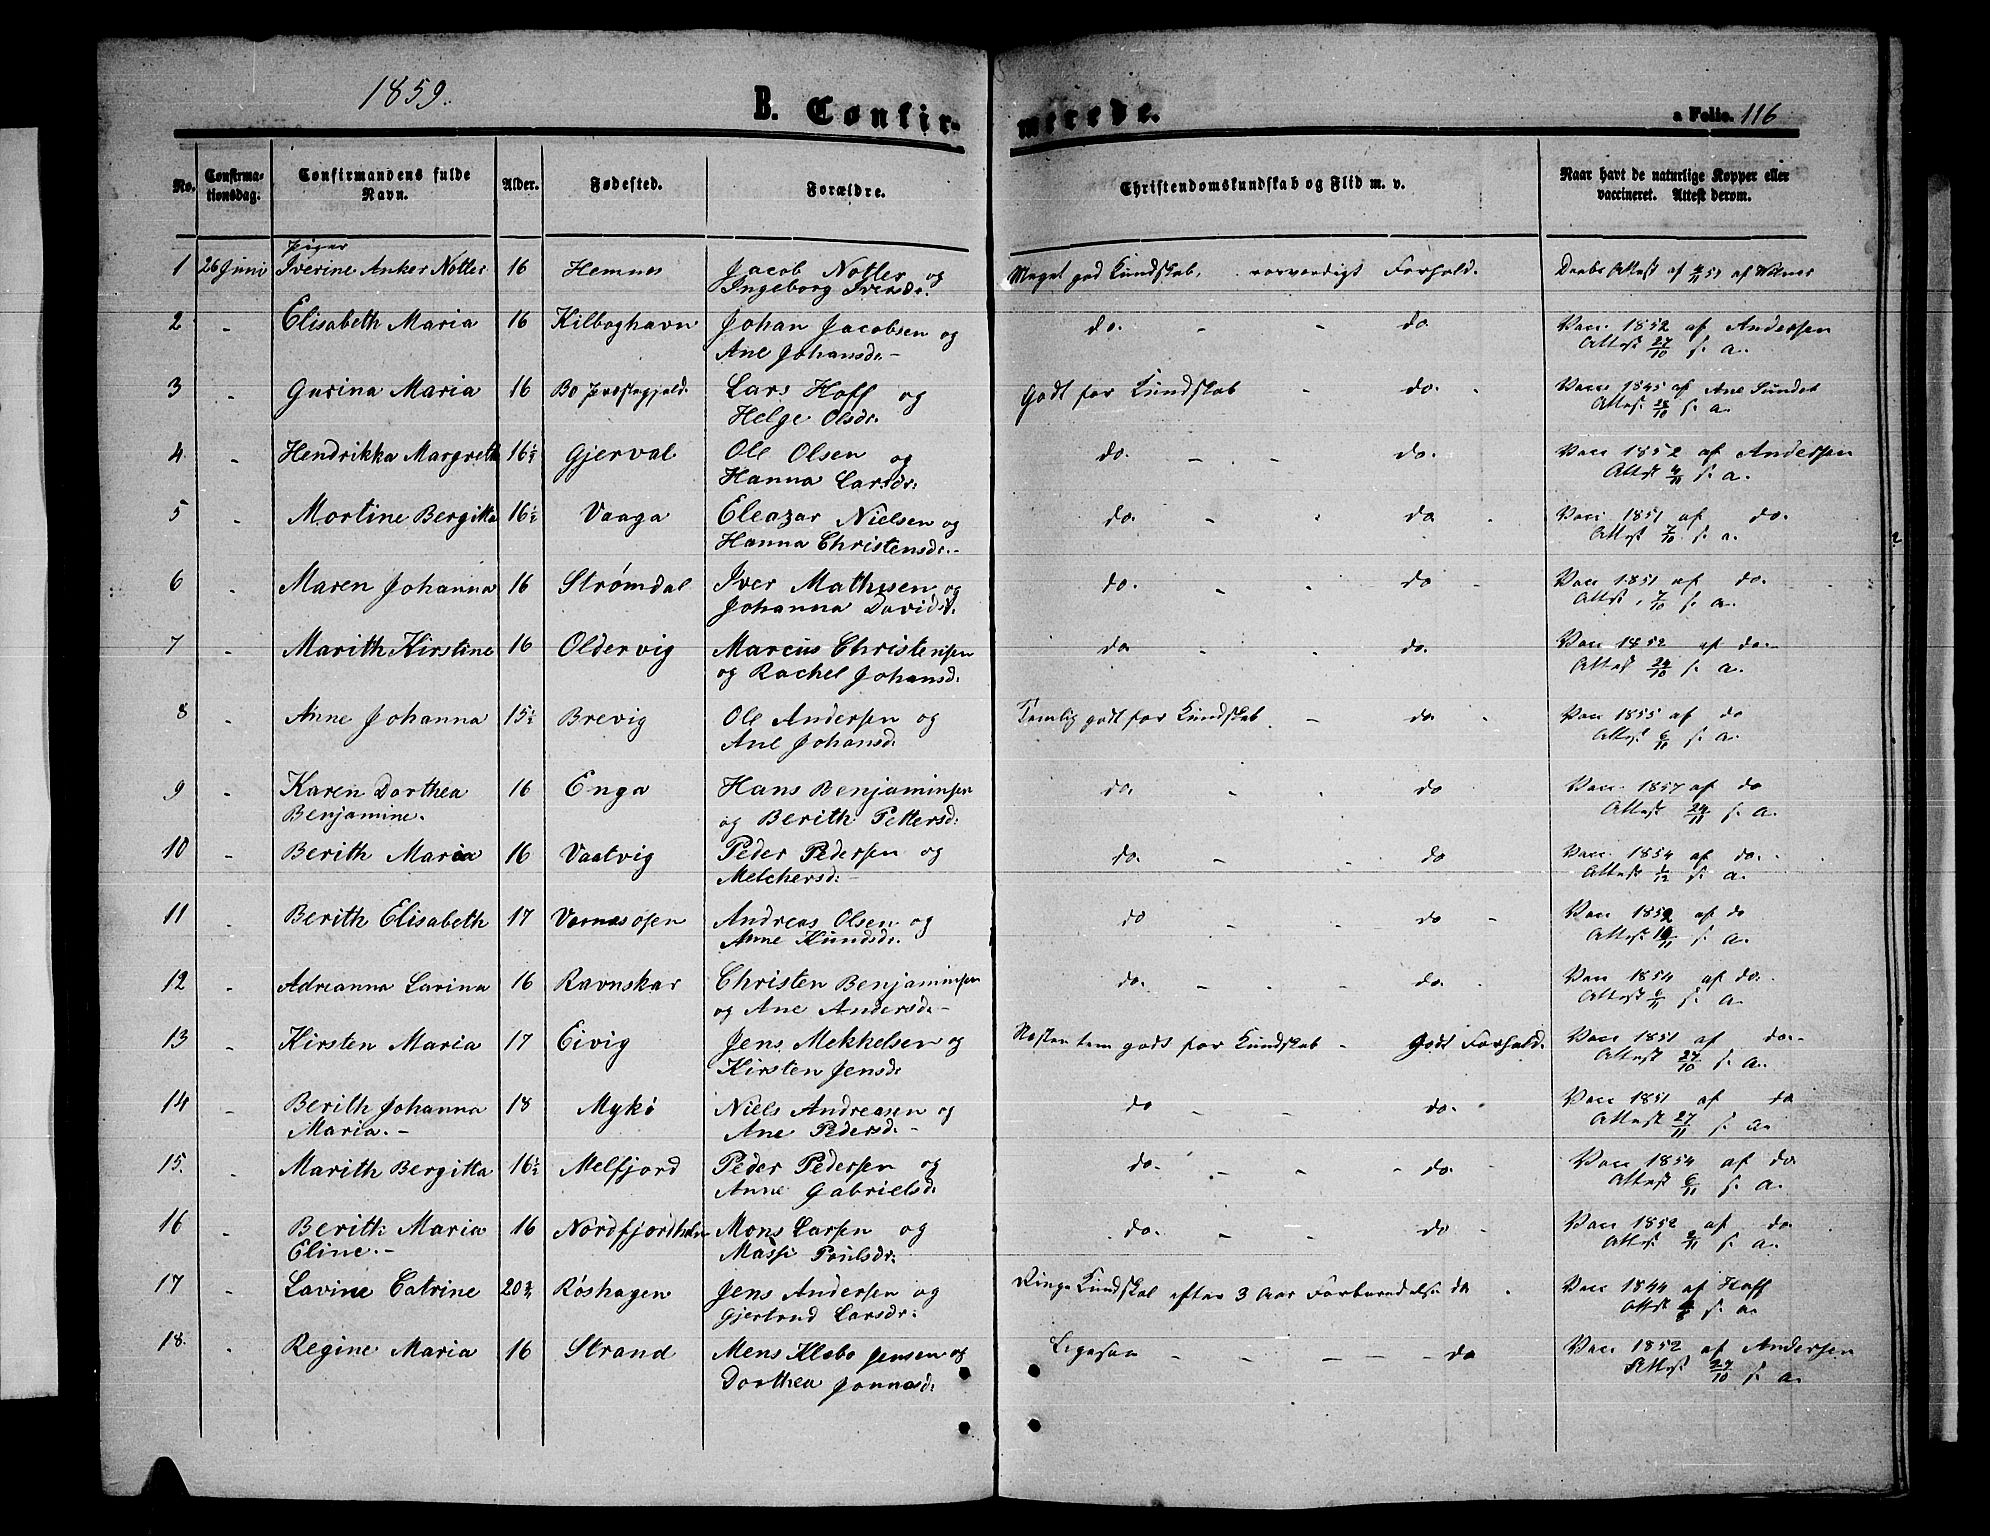 1859.
B. Confir-
merede.
a Folio. 116
No. Confirma-tionsdag. Confirmandens fulde Navn. Alder. Fødested. Forældre. Christendomskundskab og Flid m. v. Naar havt de naturlige Kopper eller vaccineret. Attest derom.
Piger
1 26 Juni Iverine Anker Notler 16 Hemnes Jacob Notler og Meget god Kundskab, Forhold. Daabs Attest af 51 af
Ingeborg Iversdr.
2 - Elisabeth Maria 16 Kilboghavn Johan Jacobsen og do. - - do Vacc. 1852 af Andersen
Ane Johansdr. - Attest 27/10 s. a.
3 - Gurina Maria 16 Bo Præstegjeld. Lars Hoff og Godt for Kundskab - do. - Vacc 1845 af Ane Sundet
Helge Olsdr. Attest 28/10 s. a.
4 - Hendrikka Margreth 16½ Gjerval Ole Olsen og do. - - do. Vacc 1852 af Andersen
Hanna Larsdr. Attest s. a.
5 - Mortine Bergitta 16½ Vaaga Eleazar Nielsen og do. - - do - Vacc. 1851 af do.
Hanna Christensdr. - Attest 7/10 s. a.
6 - Maren Johanna 16 Strømdal Iver Mathisen og do. - - do - Vacc 1851 af do.
Johanna Davidsd. Attest 7/10 s. a.
7 - Marith Kirstine 16 Oldervig Marcus Christensen do - - do. Vacc 1852 af do.
og Rachel Johansd. Attest 24/10 s. a.
8 - Anne Johanna 15½ Brevig Ole Andersen og Temlig godt for Kundskab - do - Vacc 1855 af do
Ane Johansd. Attest 6/11 s. a.
9 - Karen Dorthea 16 Enga Hans Benjaminsen do. - - do Vacc. 1857 af do
Benjamine. og Berith Pettersd. Attest 24/11 s. a.
10 - Berith Maria 16 Vaatvig Peder Pedersen og do. - - do Vacc. 1854 af do.
Melchersd. - Attest 1/12 s. a.
11 - Berith Elisabeth 17 Værnesosen Andreas Olsen og do - - do - Vacc 1852 af do
Anne Kundsdr. Attest s. a.
12 - Adrianna Larina 16 Ravnskar Christen Benjaminsen do. - - do. - Vacc 1854 af do.
og Ane Andersd. - Attest 6/11 s. a.
13 - Kirsten Maria 17 Eivig Jens Mekkelsen og Næsten tem godt for Kundskab - Godt Forhold. Vacc 1851 af do.
Kirsten Jensd. Attest 24/10 s. a.
14 - Berith Johanna 18 Mykö Niels Andreasen og do - - do. Vacc 1851 af do
Maria. - Ane Pedersd. - Attest 27/11 s. a.
15. - Marith Bergitta 16½ Melfjord Peder Pedersen og do. - - do. Vacc 1854 af do.
Anne Gabrielsd. Attest 6/11 s. a.
16 - Berith Maria 16 Nordfjordholm Mons Larsen og do. - - do - Vacc 1852 af do
Eline. - Massi Poulsdr. Attest s. a.
17 - Lavine Catrine 20¾ Røshagen Jens Andersen og Ringe Kundskab efter 3 Aars Forberedelse do - Vacc 1844 af Hoff
Gjertrud Larsdr. Attest s. a.
18. - Regine Maria 16 Strand Mens Klebo Jensen og Ligesaa - - - - do Vacc 1852 af Andersen
Dorthea Jonnasd. Attest 24/10 s. a.